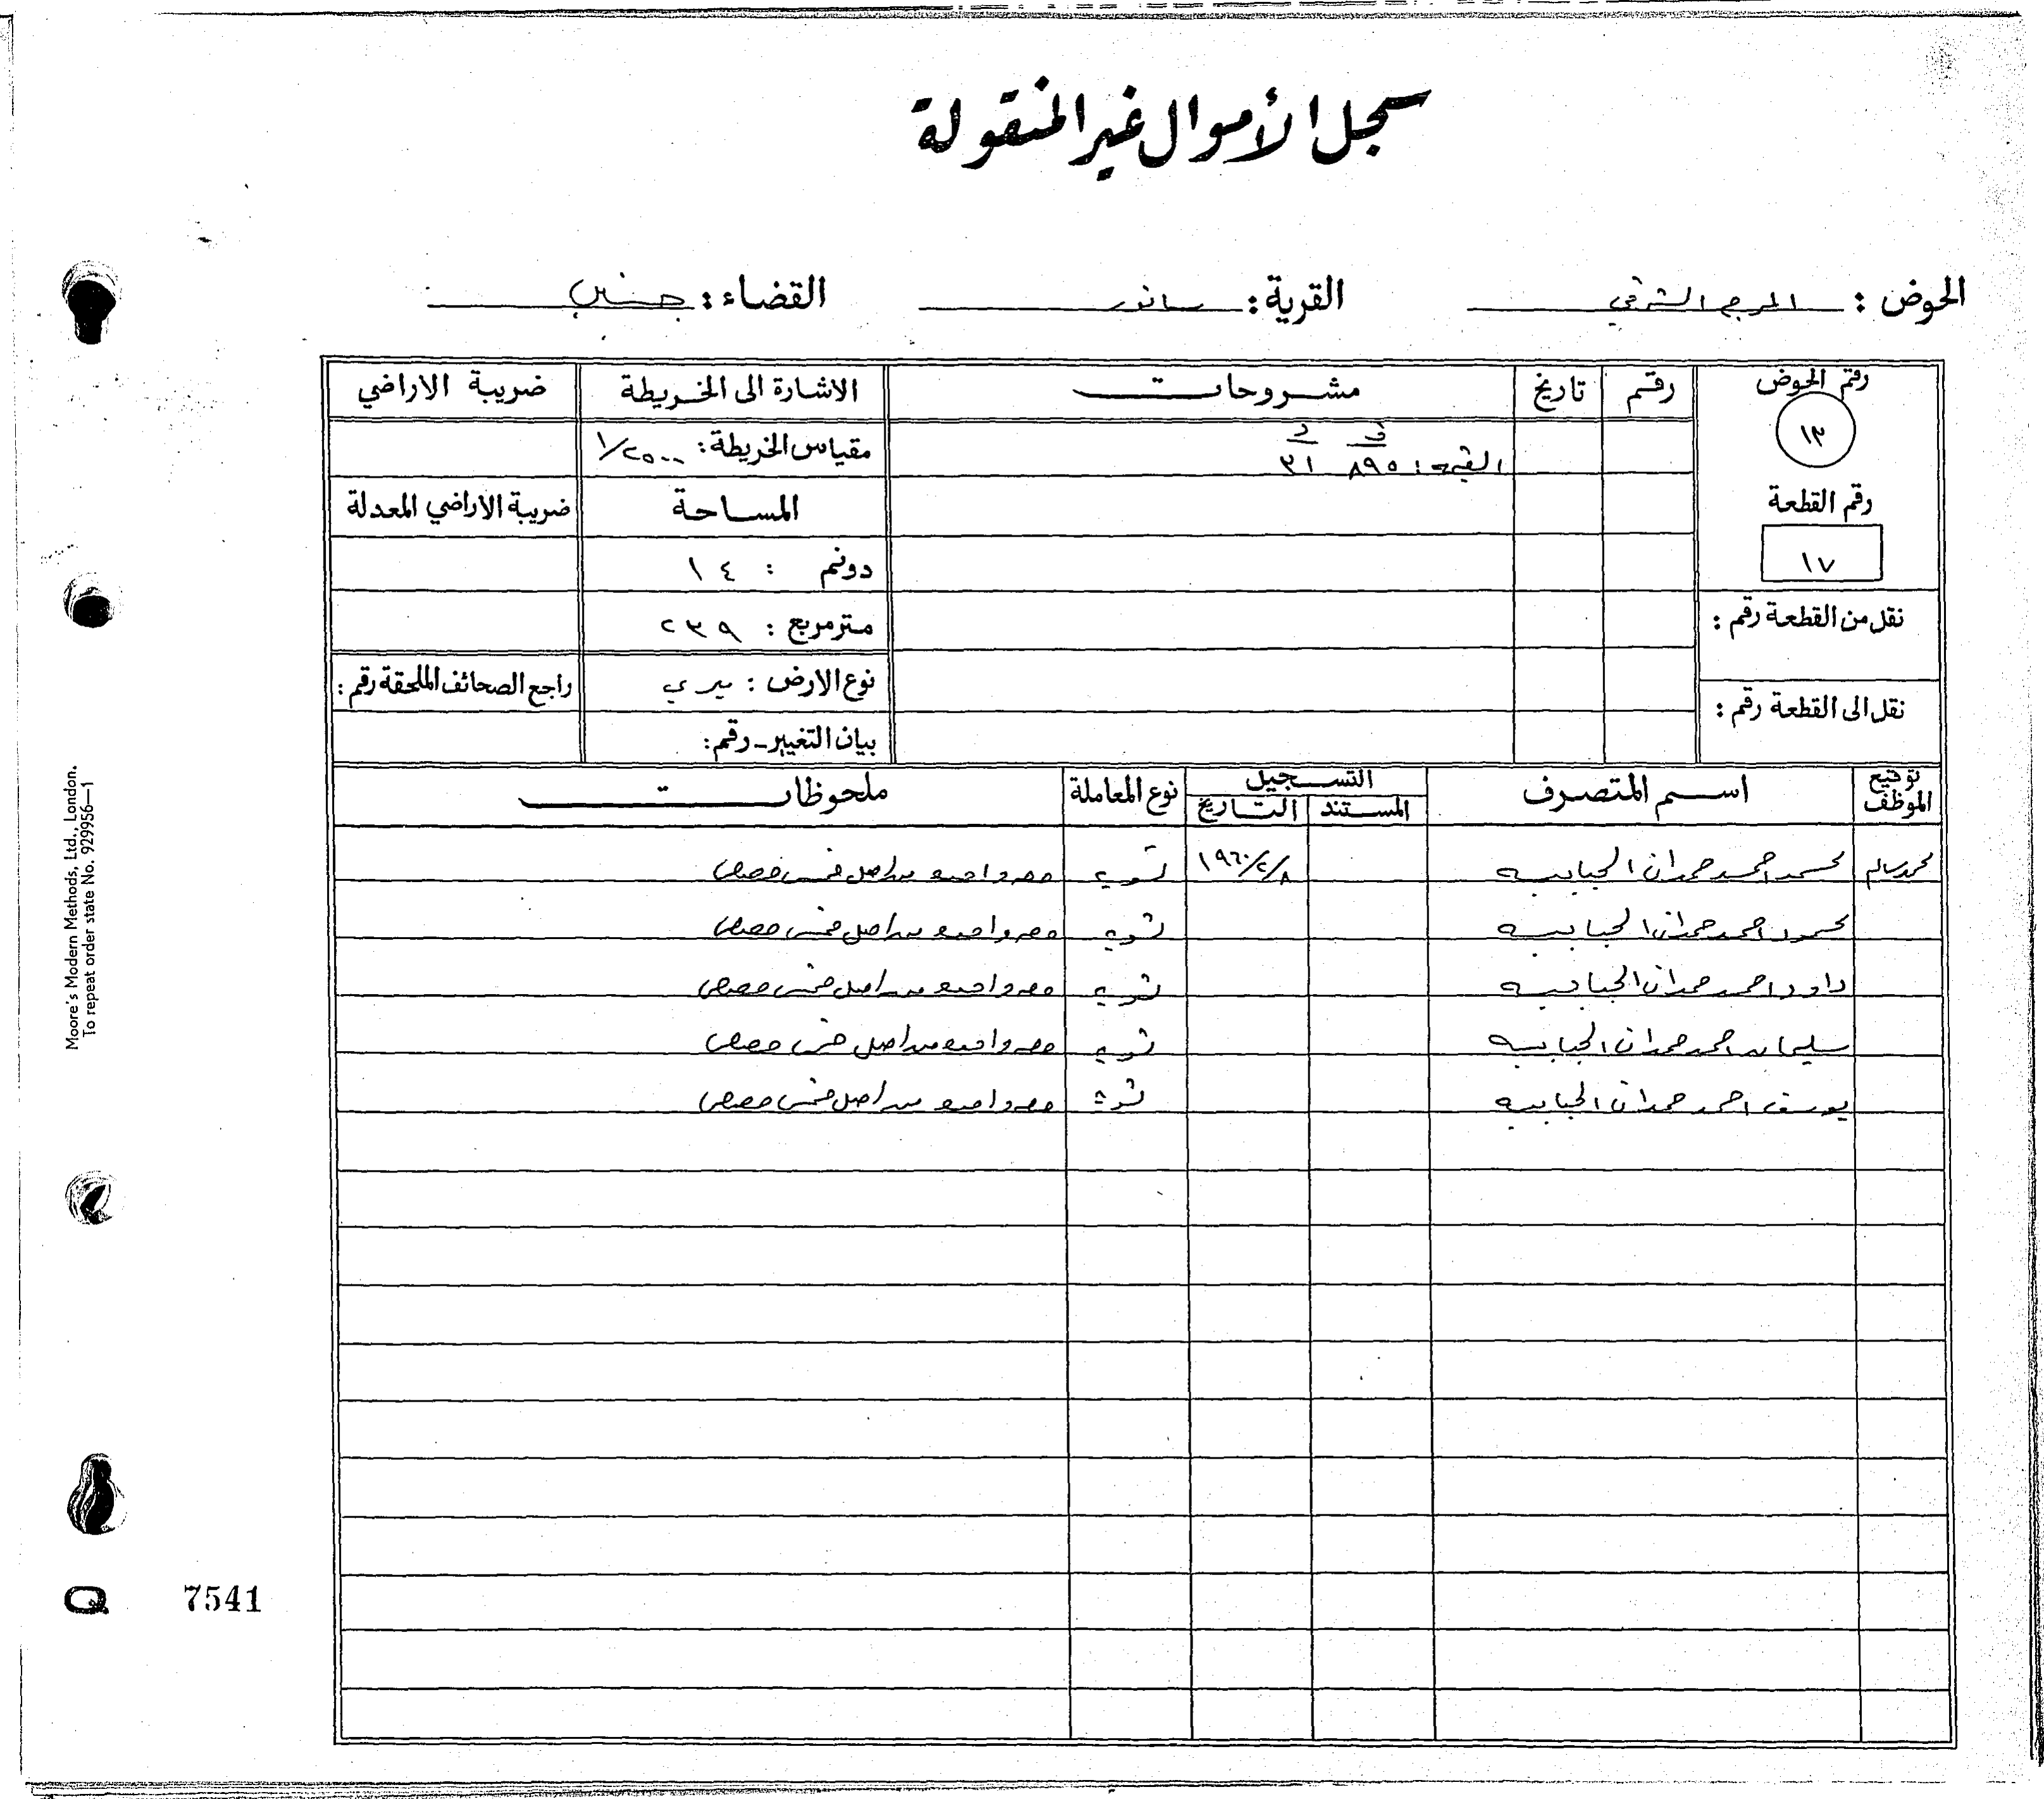 سجل الأموال غير المنقولة
الحوض : المرج الشرقي القرية : سانور القضاء : جنين
رقم الحوض رقم تاريخ مشروحات الاشارة الى الخريطة ضريبة الاراضي
١٣
ف د
القيمه : ٨٩٥ ٣١
مقياس الخريطة : ١/٢٥٠٠
رقم القطعة
١٧
المساحة ضريبة الاراضي المعدلة
دونم : ١٤
نقل من القطعة رقم :
متر مربع : ٢٣٩
نوع الارض : ميري راجع الصحائف الملحقة رقم :
نقل الى القطعة رقم :
بيان التغيير - رقم :
توقيع الموظف اسم المتصرف التسجيل نوع المعاملة ملحوظات
المستند التاريخ
محمد سالم محمد احمد حمدان الحبايبه ١٩٦٠/٢/٨ تسويه حصه واحده من اصل خمس حصص
محمود احمد حمدان الحبايبه تسويه حصه واحده من اصل خمس حصص
داود احمد حمدان الحبايبه تسويه حصه واحده من اصل خمس حصص
سليمان احمد حمدان الحبايبه تسويه حصه واحده من اصل خمس حصص
يوسف احمد حمدان الحبايبه تسويه حصه واحده من اصل خمس حصص
Moore's Modern Methods, Ltd., London.
To repeat order state No. 929956—1
Q 7541